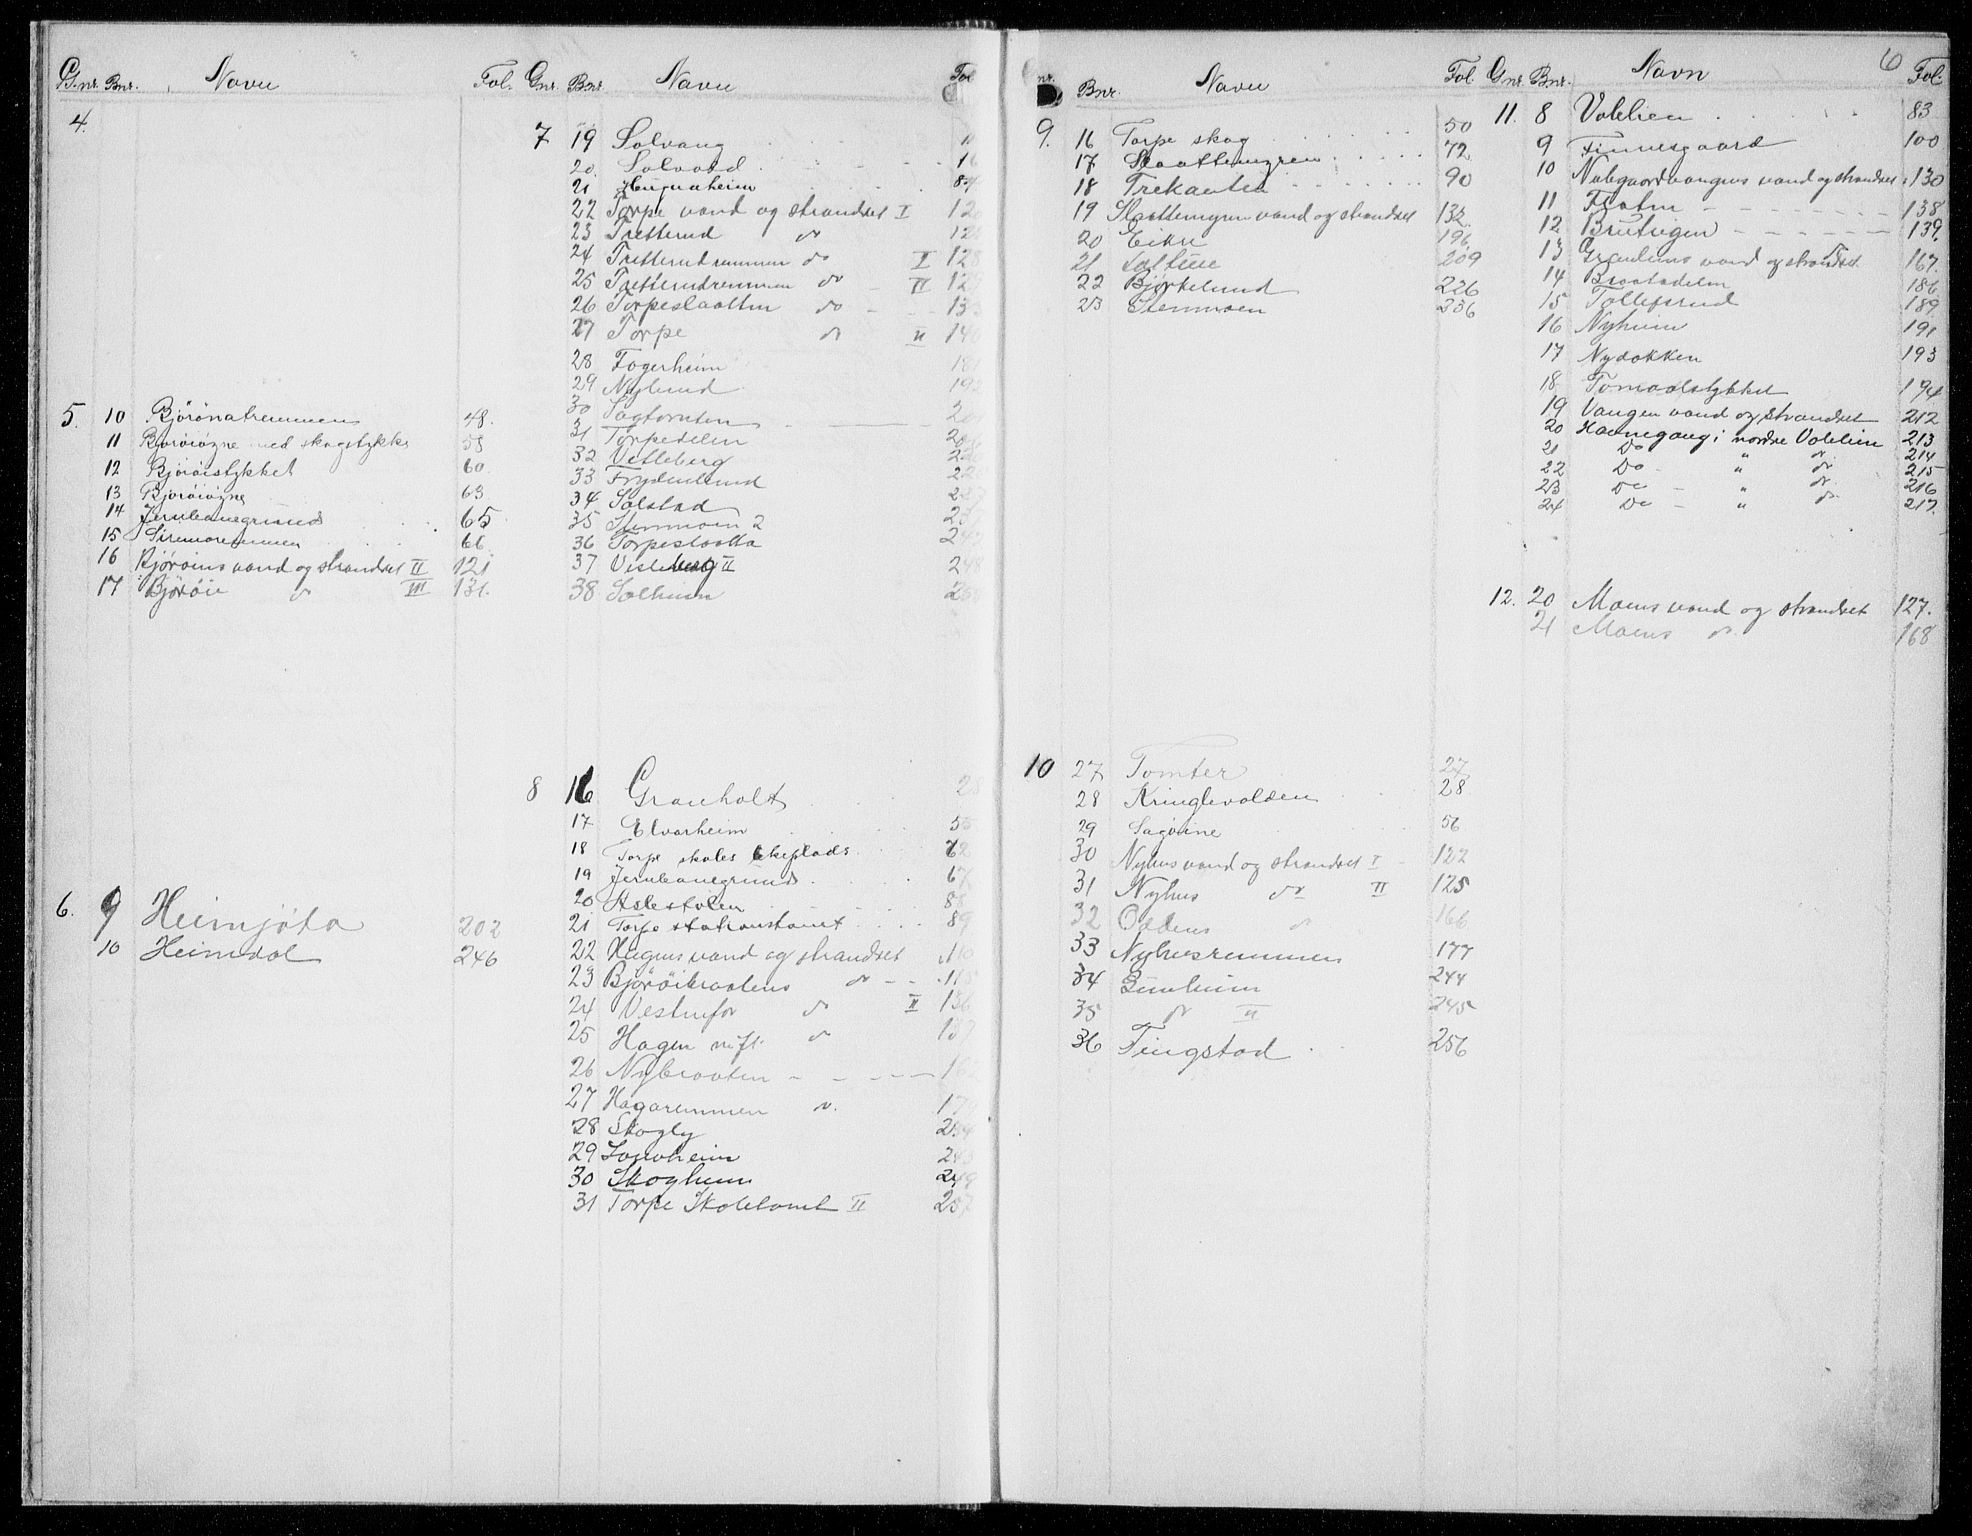 G.nr. Bnr. Navn Fol.
4.
5. 10 Björönatremmen 48.
11 Björöiögne med skogstykke 59
12 Björöistykket 60
13 Björöiögne 63
14 Jernbanegrund 65
15 Siremoremmen 66
16 Björöins vand og strandret II 121
17 Björöie do III 131.
6. 9 Heimjöta 202
10 Heimdal 246
Gnr. Bnr. Navn Fol
7 19 Solvang
20. Solvold
21 Hugnaheim 84
22 Torpe vand og strandret I 12
23 Tretterud do 12
24 Tretterudremmen do I 128
25 Tretterudremmen do II 129
26 Torpeslaatten do 133
27 Torpe do II 140
28 Fagerheim 181
29 Nylund 192
30 Sagtomten 20
31 Torpedelen 20
32 Vetleberg 22
33 Frydenlund 22
34 Solstad 22
35 Stenmoen 2 23
36 Torpeslaatta 2
37 Vesleberg II 248
38 Solheim 2
8 16 Granholt 28
17 Elvarheim 55
18 Torpe skoles ekeplads 62
19 Jernbanegrund 67
20 Aslestölen 88
21 Torpe stationstomt 89
22 Hagens vand og strandret 110
23 Björöibraatens do 115
24 Vestenfor do II 136
25 Hagen nift do 137
26 Nybraaten 162
27 Hagaremmen do. 17
28 Skogly 234
29 Solheim 243
30 Skogheim 249
31 Torpe Skoletomt II 257
nr. Bnr. Navn Fol
9. 16 Torpe skog 50
17 Slaattemyren 72
18 Trekanten 90
19 Slaattemyren vand og strandret 132
20 Eikre 196
21 Solture 209
22 Björkelund 226
23 Stenmoen 236
10 27 Tomter 27
28 Kringlevolden 28
29 Sagöine 56
30 Nyhus vand og strandret I 122
31 Nyhus do II 125
32 Oddens do 166
33 Nyhusremmen 177
34 Gunheim 244
35 do II 245
36 Tingstad 256
Gnr. Bnr. Navn 6 Fol.
11. 8 Vollien 83
9 Finnesgaard 100
10 Nubgaardvangens vand og strandret 130
11 Flaten 138
12 Bruteigen 139.
13 Grønliens vand og strandret 167.
14 Braatadelen 186
15 Tollefsrud 189
16 Nyheim 191
17 Nydokken 193
18 Tomaalstykket 194
19 Vangen vand og strandret 212
20 Havnegang i nordre Vollien 213
21 Do " do 214
22 Do " do 215
23 Do " do 216
24 Do " do 217.
12. 20 Moens vand og strandret 127.
21 Moens do 168